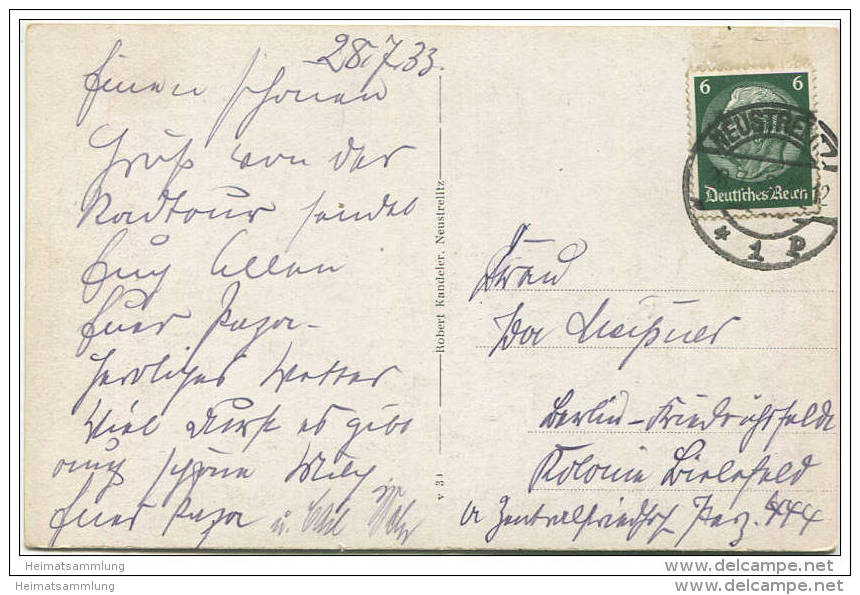 28.7.33.
Einen schönen
Gruß von der
Radtour sendet
Euch Allen
Euer Papa.
Herrliches Wetter
Viel Durst es gibt
auch schöne Milch
Euer Papa u.
Robert Kandeler, Neustrelitz
v 31
6 6
Deutsches Reich
NEUSTREL
12
* 1 p
Frau
Ida Meißner
Berlin-Friedrichsfelde
Kolonie Bielefeld
a Zentralfriedhof Parz. 444
Heimatsammlung
Heimatsammlung
www.delcampe.net
www.delcampe.net